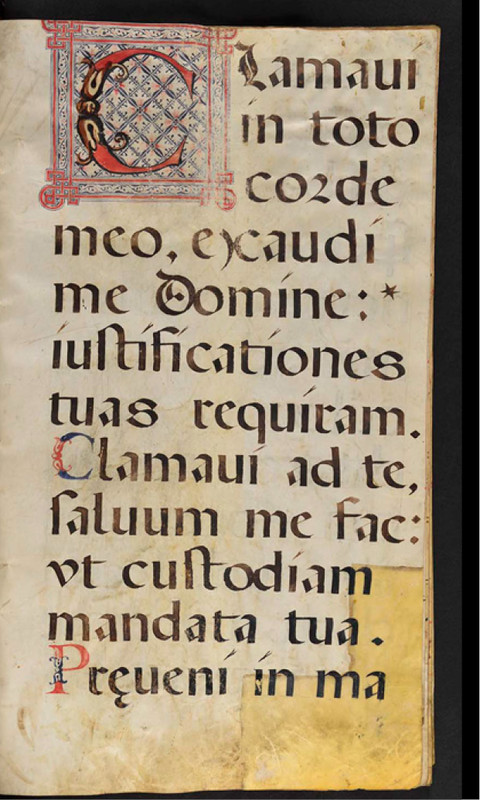 Clamaui
in toto
corde
meo, excaudi
me Domine: *
iuſtificationes
tuas requiram.
Clamaui ad te,
ſaluum me fac:
vt cuſtodiam
mandata tua.
Pręueni in ma